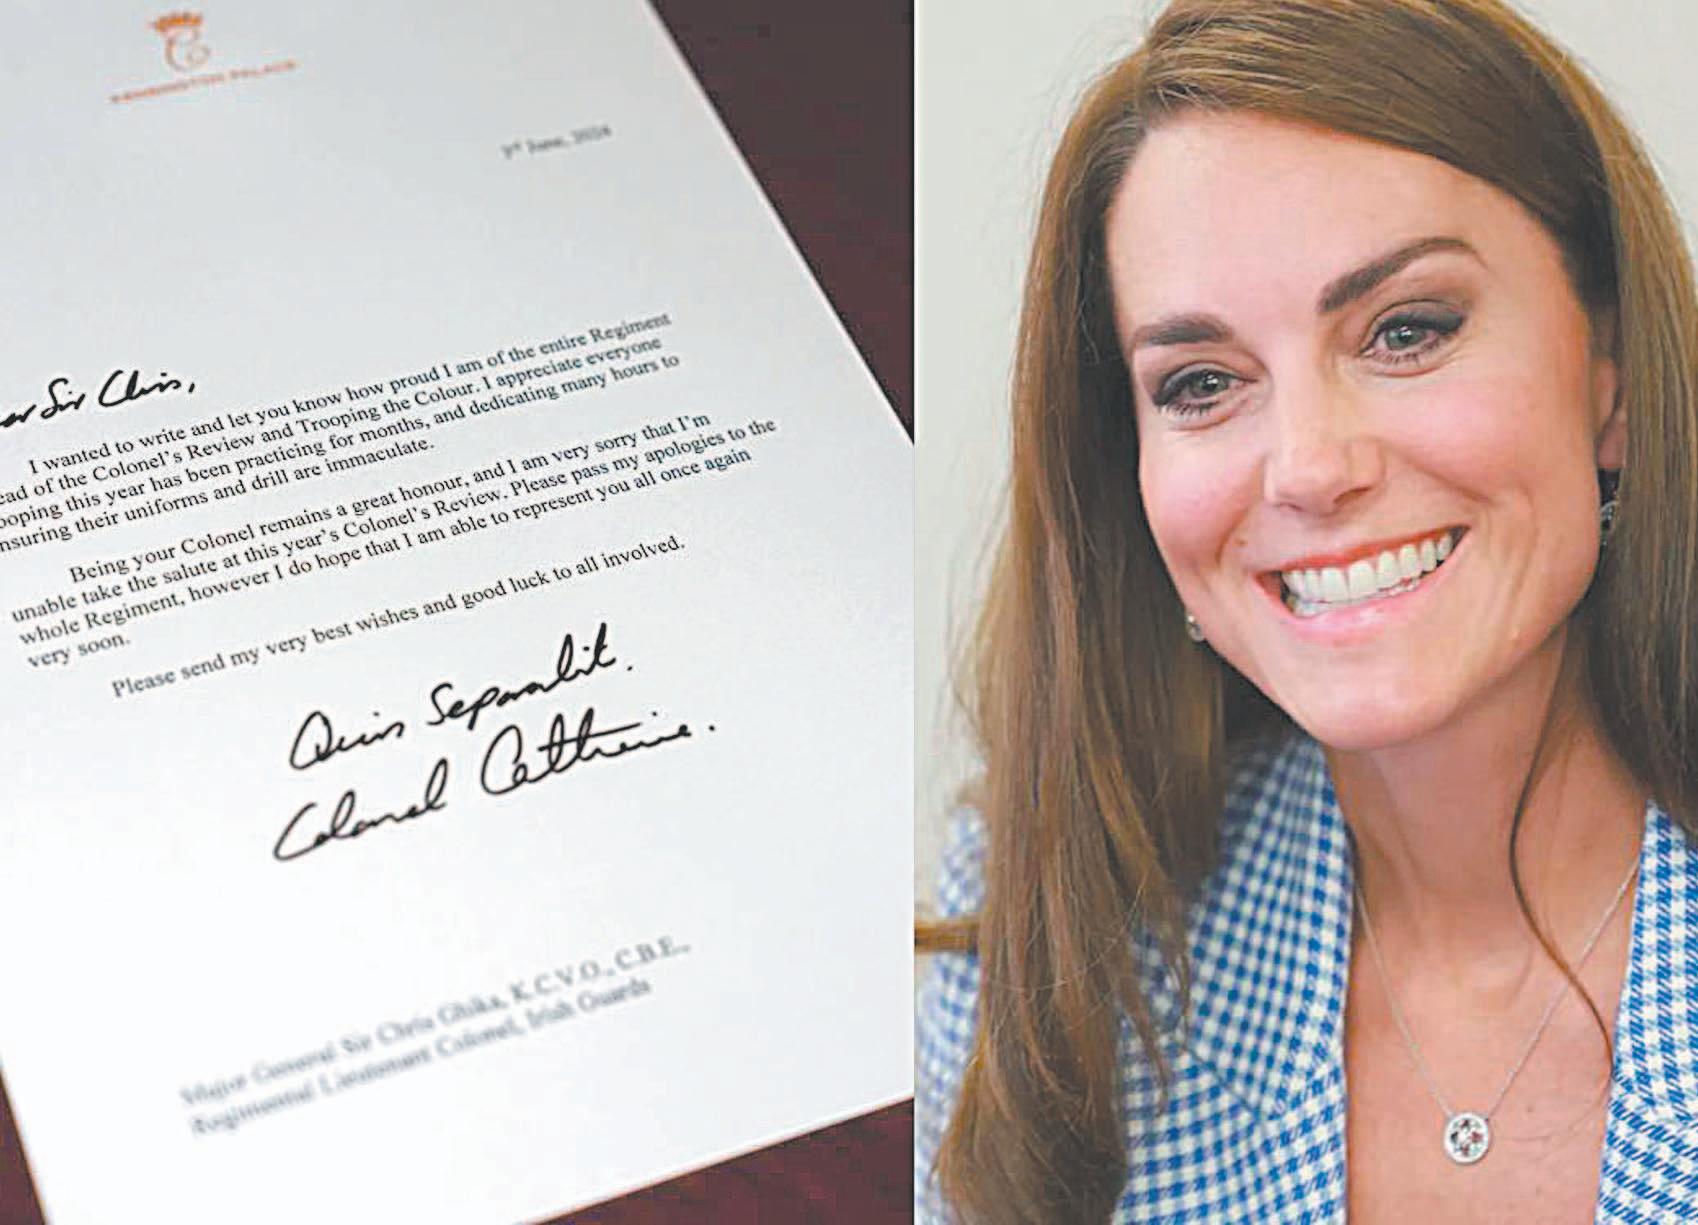 KENSINGTON PALACE
3rd June, 2024
Sir Chris,
I wanted to write and let you know how proud I am of the entire Regiment
ead of the Colonel's Review and Trooping the Colour. I appreciate everyone
ooping this year has been practicing for months, and dedicating many hours to
nsuring their uniforms and drill are immaculate.
Being your Colonel remains a great honour, and I am very sorry that I'm
unable take the salute at this year's Colonel's Review. Please pass my apologies to the
whole Regiment, however I do hope that I am able to represent you all once again
very soon.
Please send my very best wishes and good luck to all involved.
Quis Separabit.
Colonel Catherine.
Major General Sir Chris Ghika, K.C.V.O., C.B.E.,
Regimental Lieutenant Colonel, Irish Guards